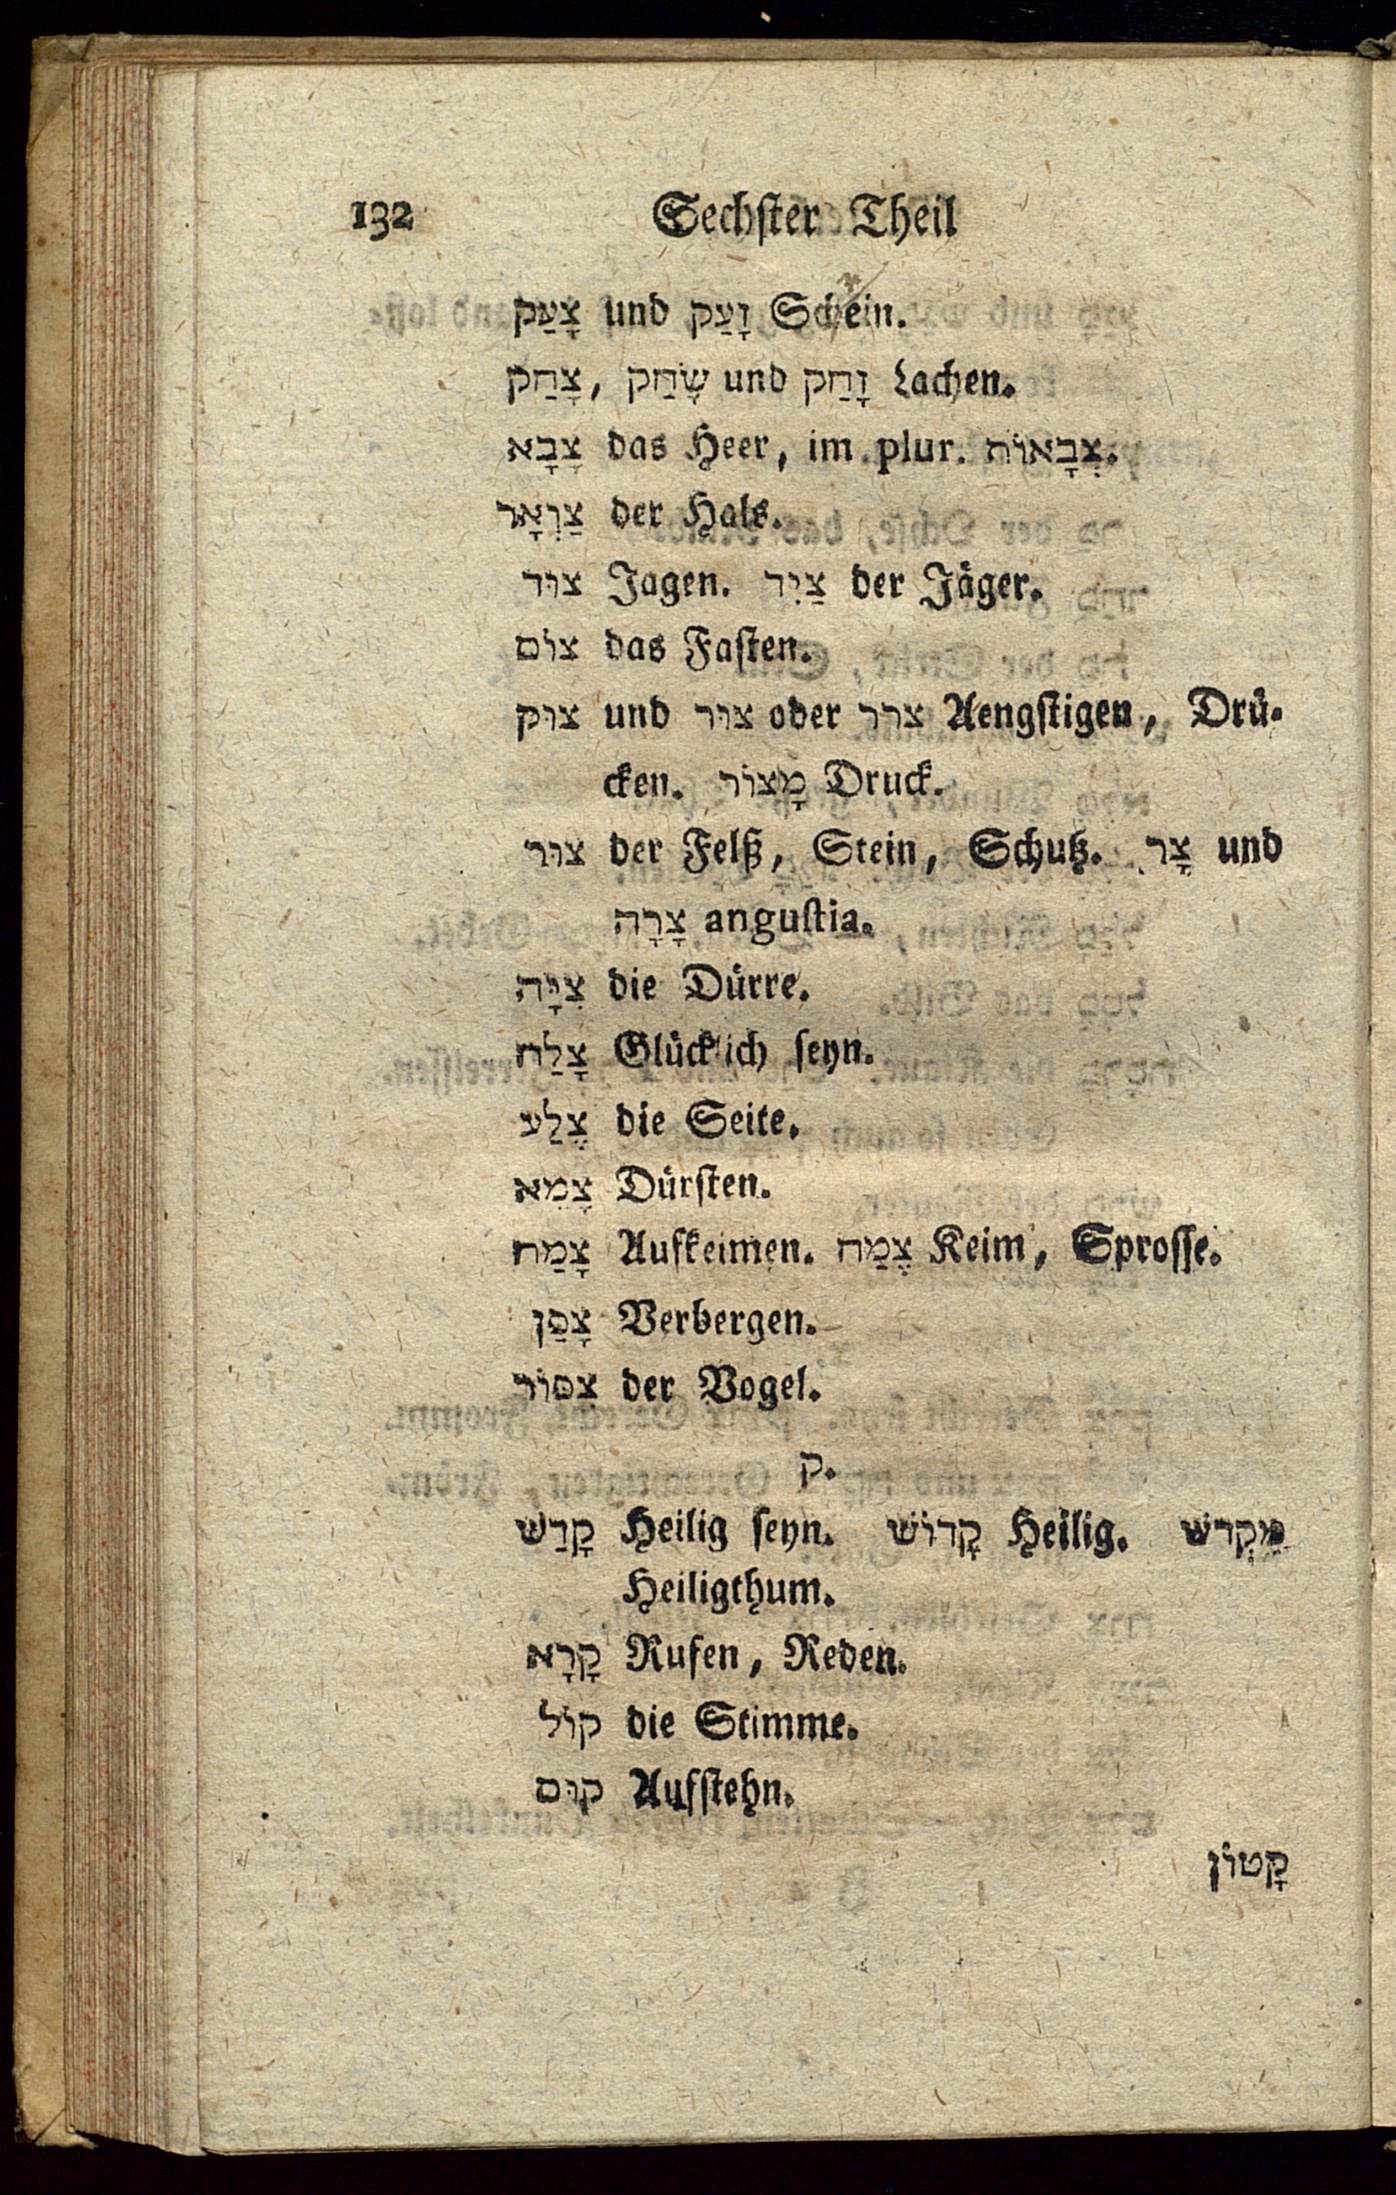 132 Sechster Theil
צָעַק und זָעַק Schein.
צָחַק, שָׂחַק und זָחַק Lachen.
צָבָא das Heer, im plur. צְבָאוֹת.
צַוְאָר der Hals.
צוּד Jagen. צַיִד der Jäger.
צוֹם das Fasten.
צוּק und צוּר oder צרר Aengstigen, Drü-
cken. מָצוֹר Druck.
צוּר der Felß, Stein, Schutz. צָר und
צָרָה angustia.
צִיָּה die Dürre.
צָלַח Glücklich seyn.
צֶלַע die Seite.
צָמֵא Dürsten.
צָמַח Aufkeimen. צֶמַח Keim, Sprosse.
צָפַן Verbergen.
צִפּוֹר der Vogel.
ק.
קָדַשׁ Heilig seyn. קָדוֹשׁ Heilig. מִקְדשׁ
Heiligthum.
קָרָא Rufen, Reden.
קוֹל die Stimme.
קוּם Aufstehn.
קָטוֹן